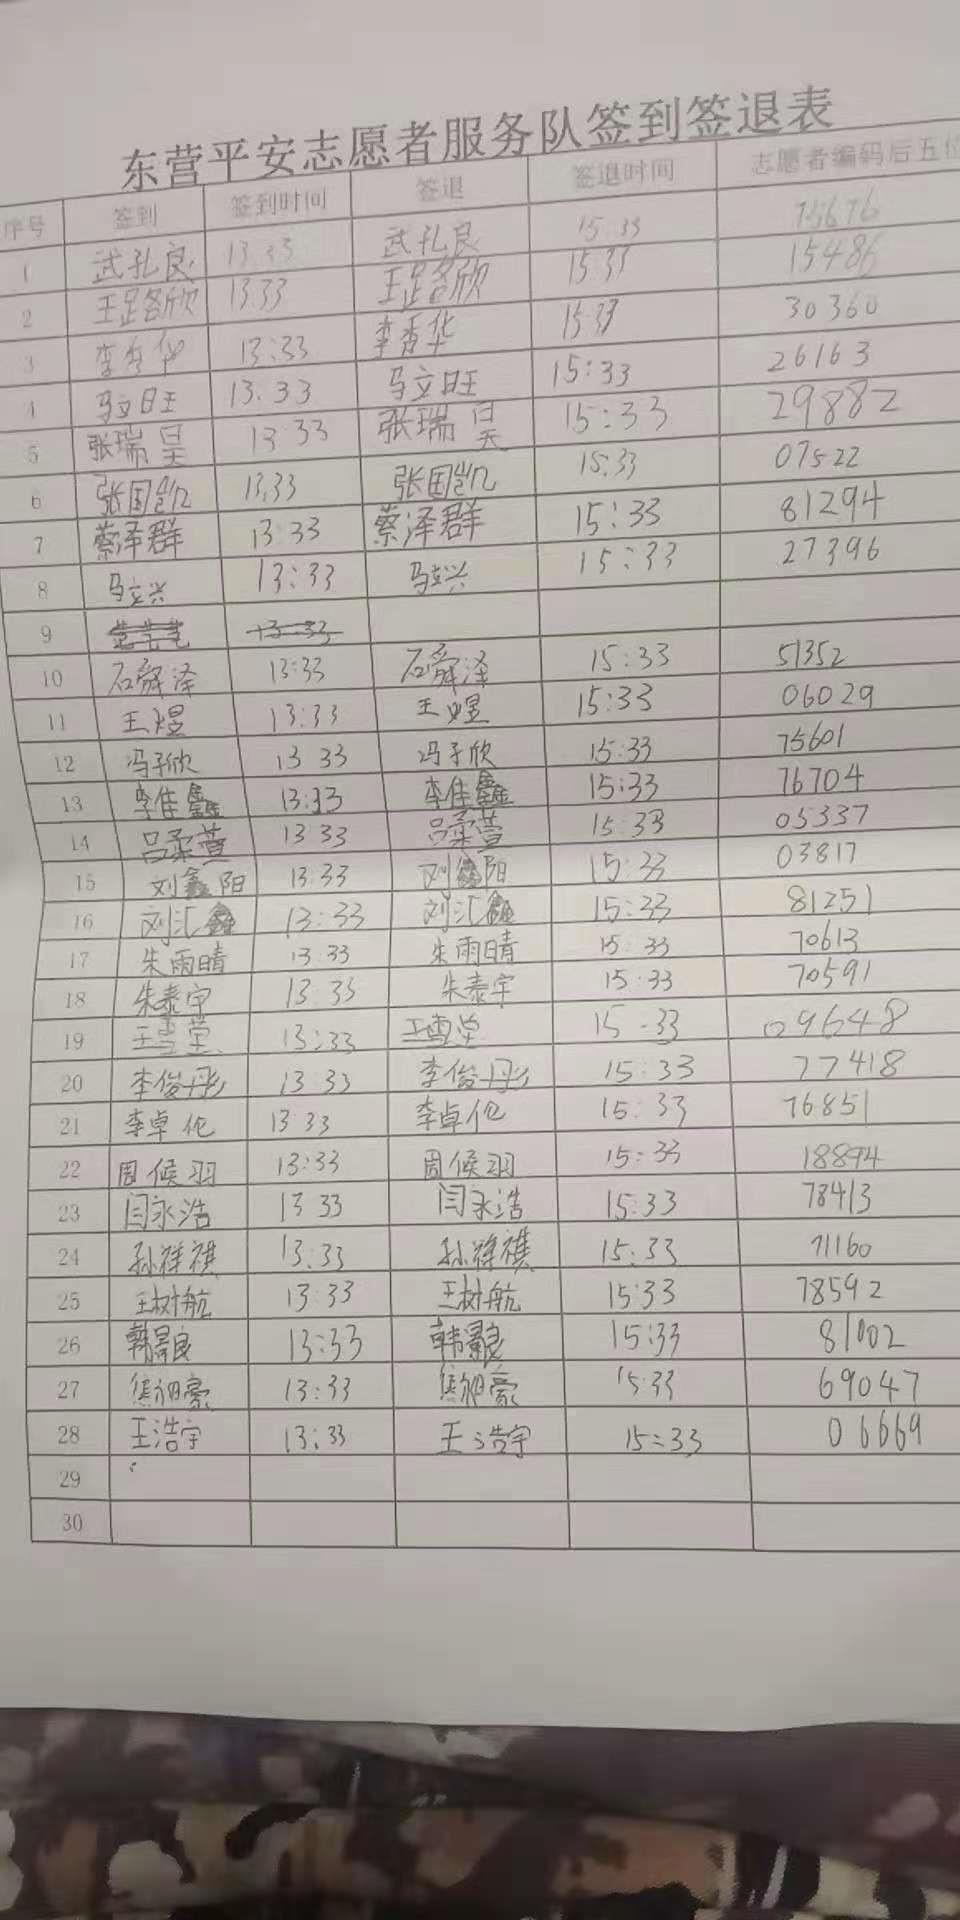 东营平安志愿者服务队签到签退表
序号 签到 签到时间 签退 签退时间 志愿者编码后五位
1 武孔良 13:33 武孔良 15:33 75676
2 13:33 15:33 15486
3 李秀华 13:33 李秀华 15:33 30360
4 马文旺 13:33 马文旺 15:33 26163
5 张瑞昊 13:33 张瑞昊 15:33 29882
6 张国凯 13:33 张国凯 15:33 07522
7 蔡泽群 13:33 蔡泽群 15:33 81294
8 马立兴 13:33 马立兴 15:33 27396
9 13:33
10 石舜泽 13:33 石舜泽 15:33 51352
11 王煜 13:33 王煜 15:33 06029
12 冯子欣 13 33 冯子欣 15:33 75601
13 李佳鑫 13:33 李佳鑫 15:33 76704
14 吕柔萱 13 33 吕柔萱 15:33 05337
15 刘鑫阳 13:33 刘鑫阳 15:33 03817
16 刘汇鑫 13:33 刘汇鑫 15:33 81251
17 朱雨晴 13:33 朱雨晴 15:33 70613
18 朱泰宇 13:33 朱泰宇 15:33 70591
19 王雪莹 13:33 王雪莹 15:33 09648
20 李俊彤 13:33 李俊彤 15:33 77418
21 李卓伦 13:33 李卓伦 15:33 76851
22 周候羽 13:33 周候羽 15:33 18894
23 闫永浩 13 33 闫永浩 15:33 78413
24 孙祥祺 13:33 孙祥祺 15:33 71160
25 王树航 13:33 王树航 15:33 78592
26 韩景良 13:33 韩景良 15:33 81002
27 13:33 15:33 69047
28 王浩宇 13:33 王浩宇 15:33 06669
29
30